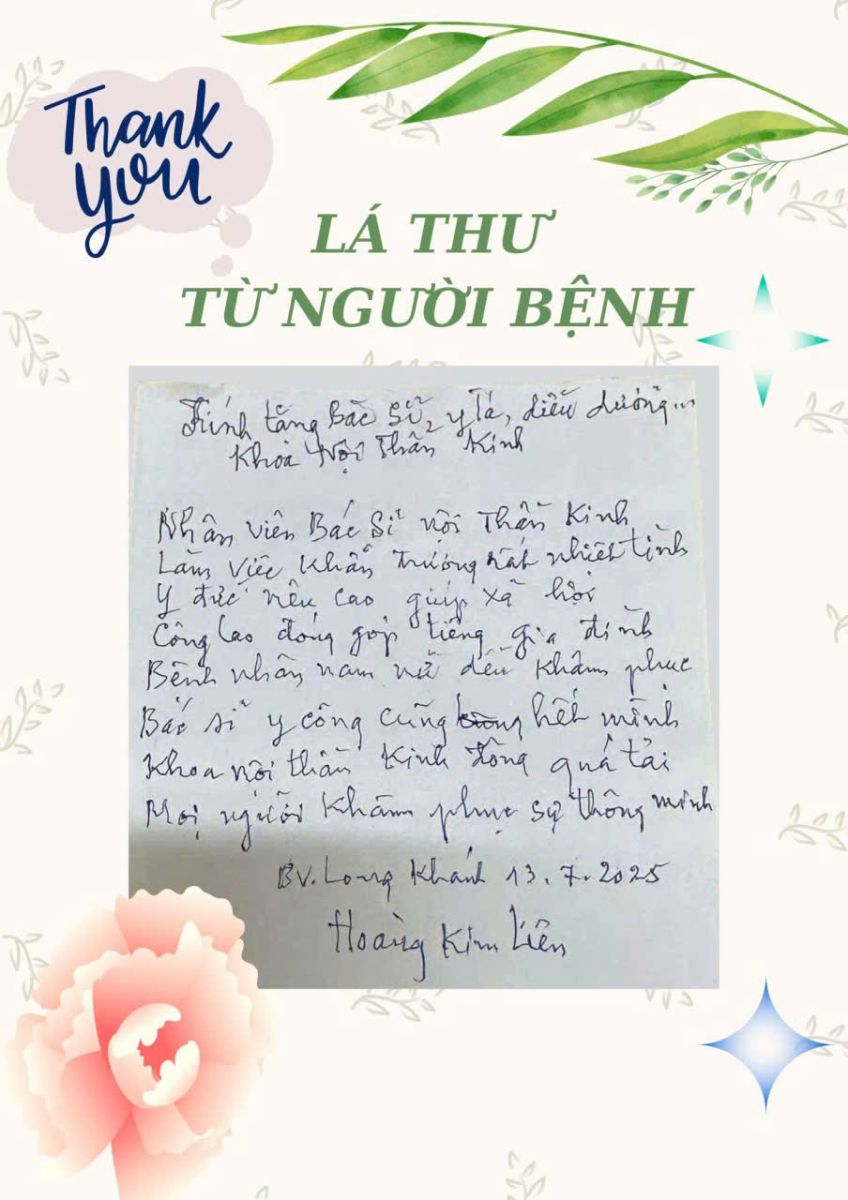 Thank
you
LÁ THƯ
TỪ NGƯỜI BỆNH
Kính tặng Bác Sĩ, y tá, điều dưỡng...
Khoa Nội Thần Kinh
Nhân viên Bác Sĩ nội Thần Kinh
Làm việc Khẩn Trương rất nhiệt tình
Y đức nêu cao giúp xã hội
Công lao đóng góp tiếng gia đình
Bệnh nhân nam nữ đều Khâm phục
Bác sĩ y công cũng hết mình
Khoa nội thần Kinh đông quá tải
Mọi người Khâm phục sự thông minh
BV. Long Khánh 13.7.2025
Hoàng Kim Liên